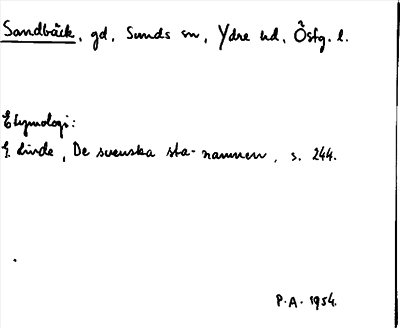 Sandbäck, gd, Sunds sn, Ydre hd, Östg. l.
Etymologi:
G. Linde, De svenska sta-namnen, s. 244.
P.A. 1954.